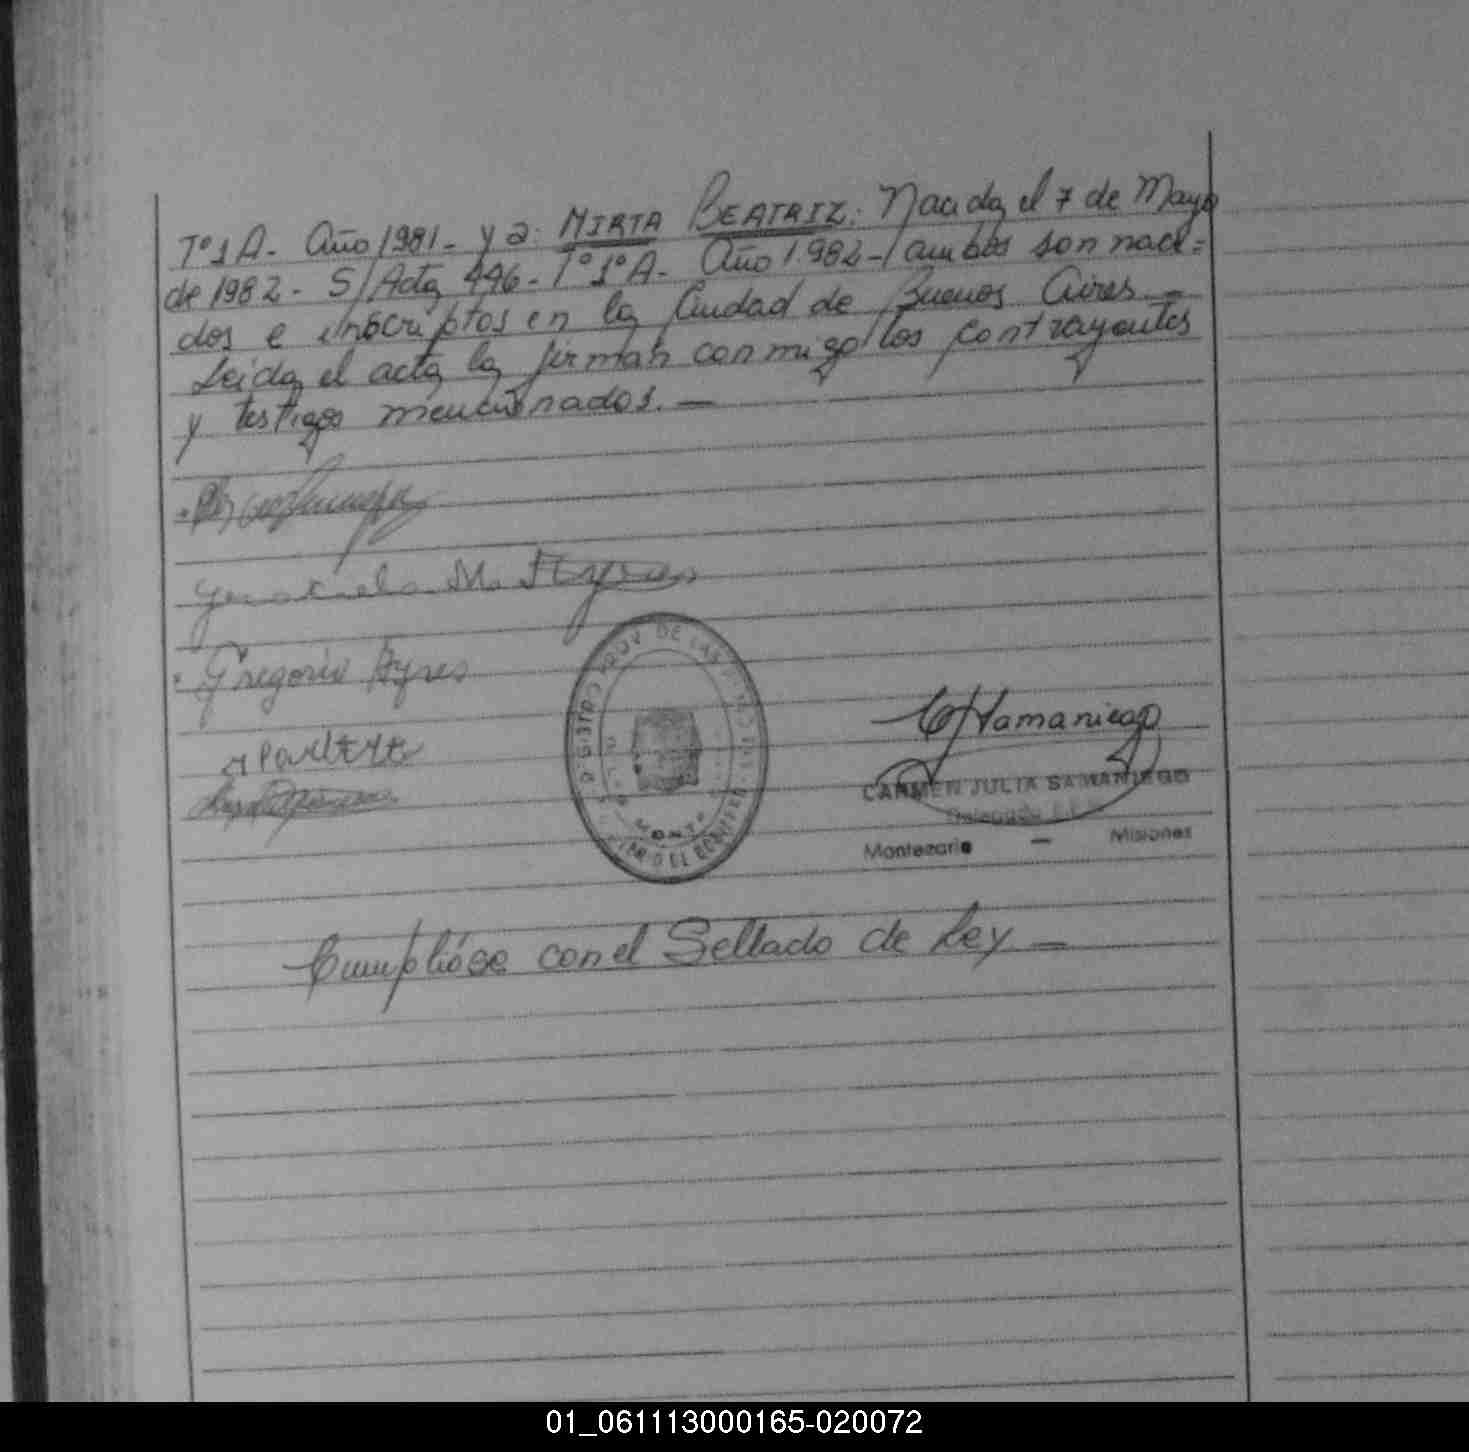 Tº 1 A- Año 1981- y a: MIRTA BEATRIZ: Nacida el 7 de Mayo
de 1982- S/Acta 446- Tº 1º A- Año 1982- ambos son naci=
dos e inscriptos en la Ciudad de Buenos Aires-
Leida el acta la firman conmigo los contrayentes
y testigos mencionados.-
M. Ayres
Gregorio Ayres
CARMEN JULIA SAMANIEGO
Montecarlo - Misiones
Cumplióse con el Sellado de Ley-
01_061113000165-020072